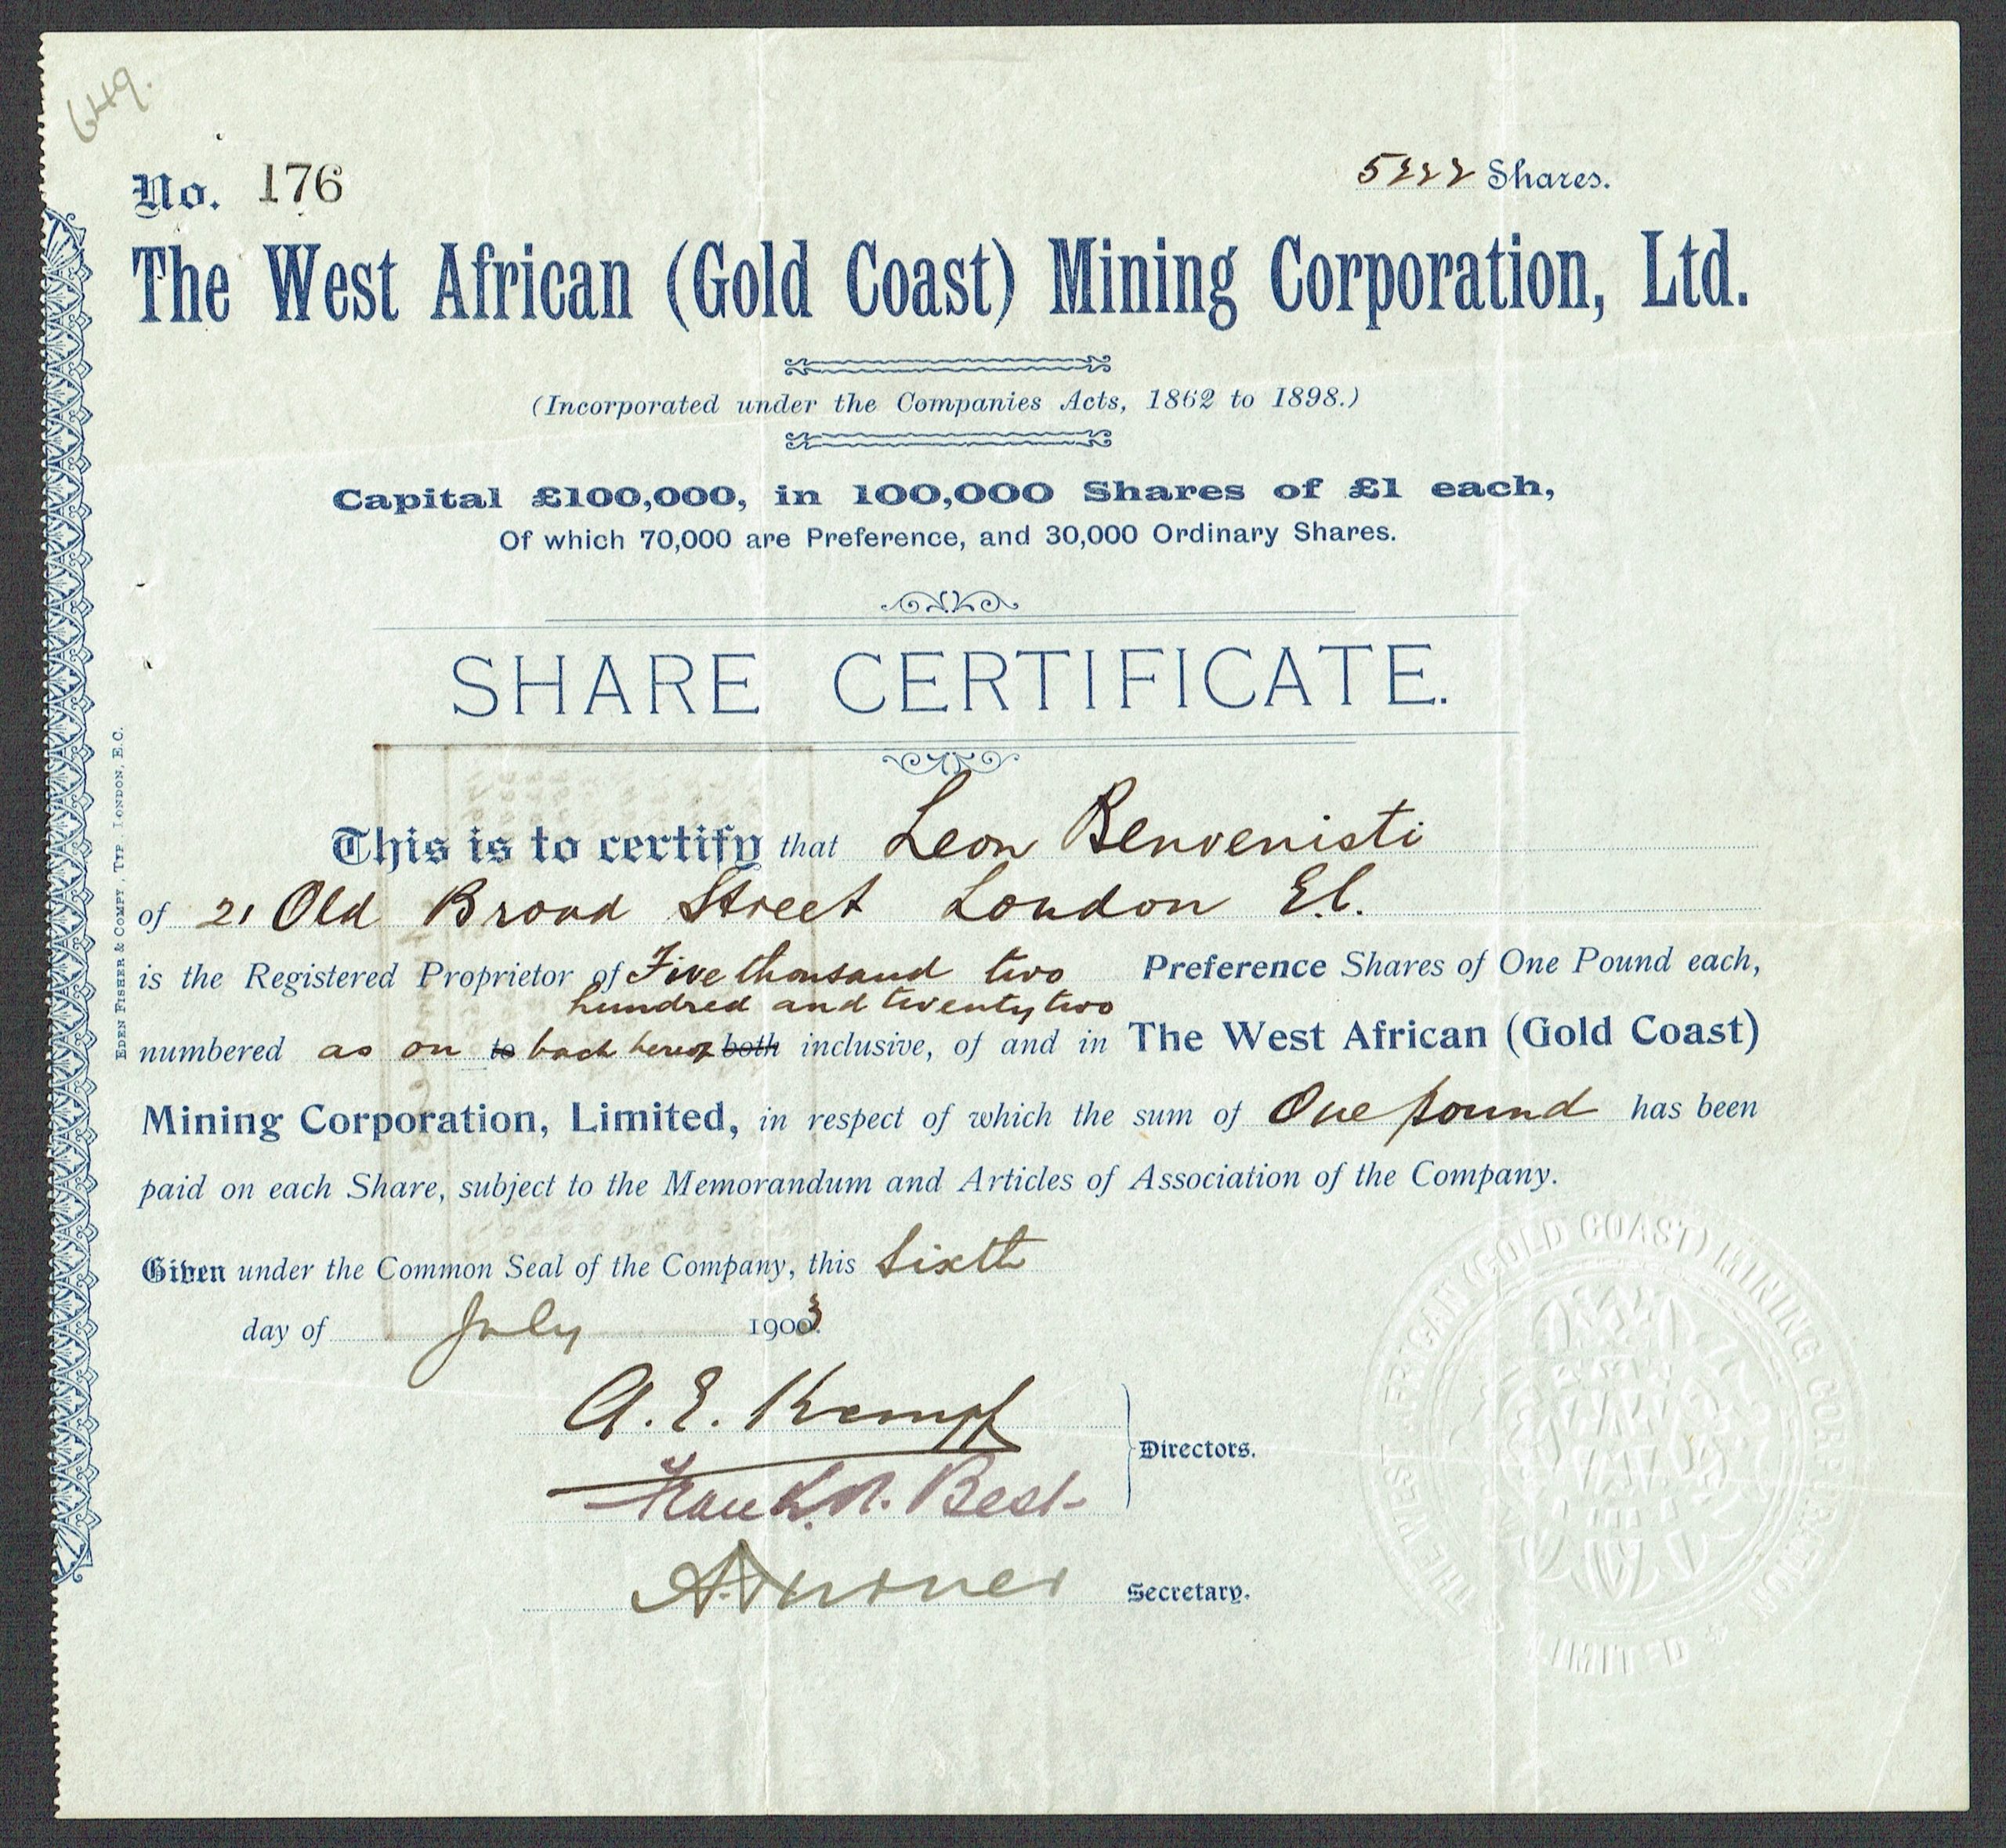 649.
No. 176
5222 Shares.
The West African (Gold Coast) Mining Corporation, Ltd.
(Incorporated under the Companies Acts, 1862 to 1898.)
Capital £100,000, in 100,000 Shares of £1 each,
Of which 70,000 are Preference, and 30,000 Ordinary Shares.
SHARE CERTIFICATE.
This is to certify that Leon Benvenisti
of 21 Old Broad Street London E.C.
is the Registered Proprietor of Five thousand two Preference Shares of One Pound each,
hundred and twenty two
numbered as on to back hereof both inclusive, of and in The West African (Gold Coast)
Mining Corporation, Limited, in respect of which the sum of One pound has been
paid on each Share, subject to the Memorandum and Articles of Association of the Company.
Given under the Common Seal of the Company, this Sixth
day of July 1903.
A. E. Kempf
Directors.
Frank N. Best
Secretary.
EDEN FISHER & COMPY, TYP. LONDON, E.C.
THE WEST AFRICAN (GOLD COAST) MINING CORPORATION
LIMITED